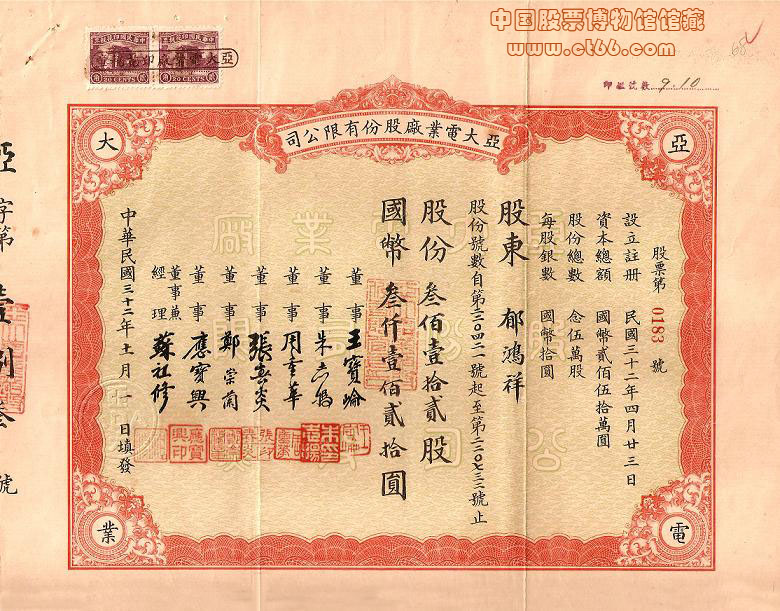 中国股票博物馆馆藏
www.ct66.com
中華民國印花稅票
20 CENTS
20 CENTS
印鑑號數 9.10
亞大電業廠股份有限公司
亞
大
電
業
股票第 0183 號
設立註冊 民國三十二年四月廿三日
資本總額 國幣貳佰伍拾萬圓
股份總數 念伍萬股
每股銀數 國幣拾圓
股東 郁鴻祥
股份 叁佰壹拾貳股
國幣 叁仟壹佰貳拾圓
董事 王寶崙
董事
董事
董事 張春炎
董事
董事 應寶興
董事兼經理 蘇祖修
中華民國三十二年十一月一日填發
亞字第壹捌叁號